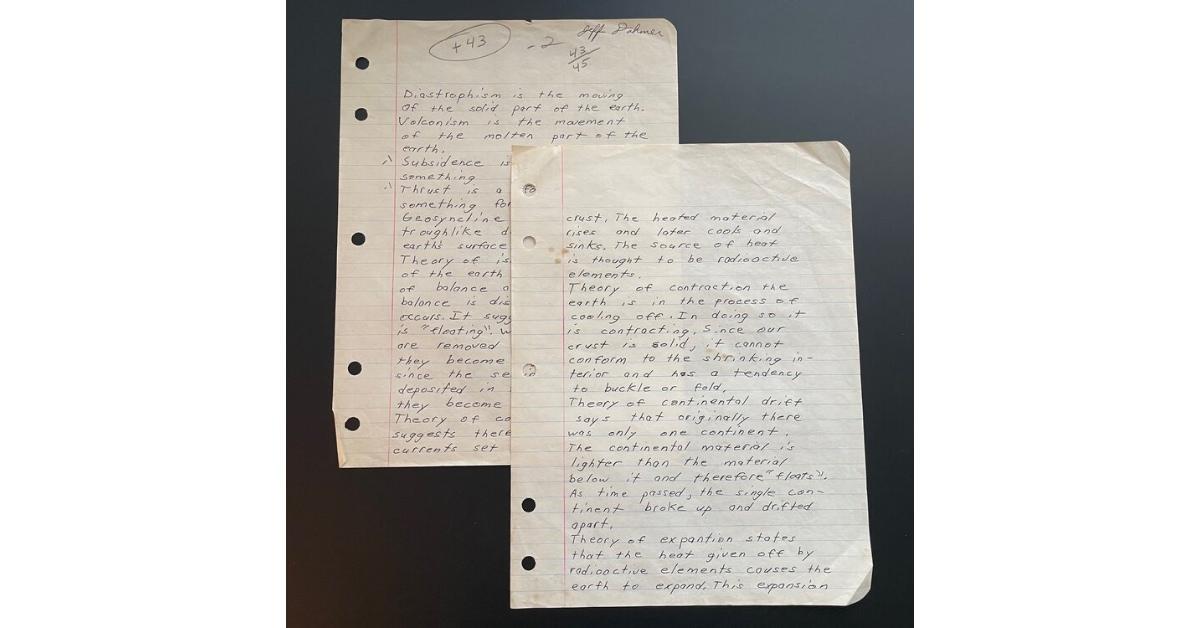 +43
-2
Jeff Dahmer
43/45
Diastrophism is the moving
Of the solid part of the earth.
Volconism is the movement
of the molten part of the
earth.
Subsidence is
something
Thrust is a
something for
Geosyncline
troughlike d
earth's surface
Theory of is
of the earth
of balance a
balance is dis
occurs. It sugg
is "floating". W
are removed
they become
since the se
deposited in
they become
Theory of co
suggests there
currents set
to
in
crust. The heated material
rises and later cools and
sinks. The source of heat
is thought to be radioactive
elements.
Theory of contraction the
earth is in the process of
cooling off. In doing so it
is contracting. Since our
crust is solid, it cannot
conform to the shrinking in-
terior and has a tendency
to buckle or fold.
Theory of continental drift
says that originally there
was only one continent.
The continental material is
lighter than the material
below it and therefore "floats".
As time passed, the single con-
tinent broke up and drifted
apart.
Theory of expantion states
that the heat given off by
radioactive elements causes the
earth to expand. This expansion